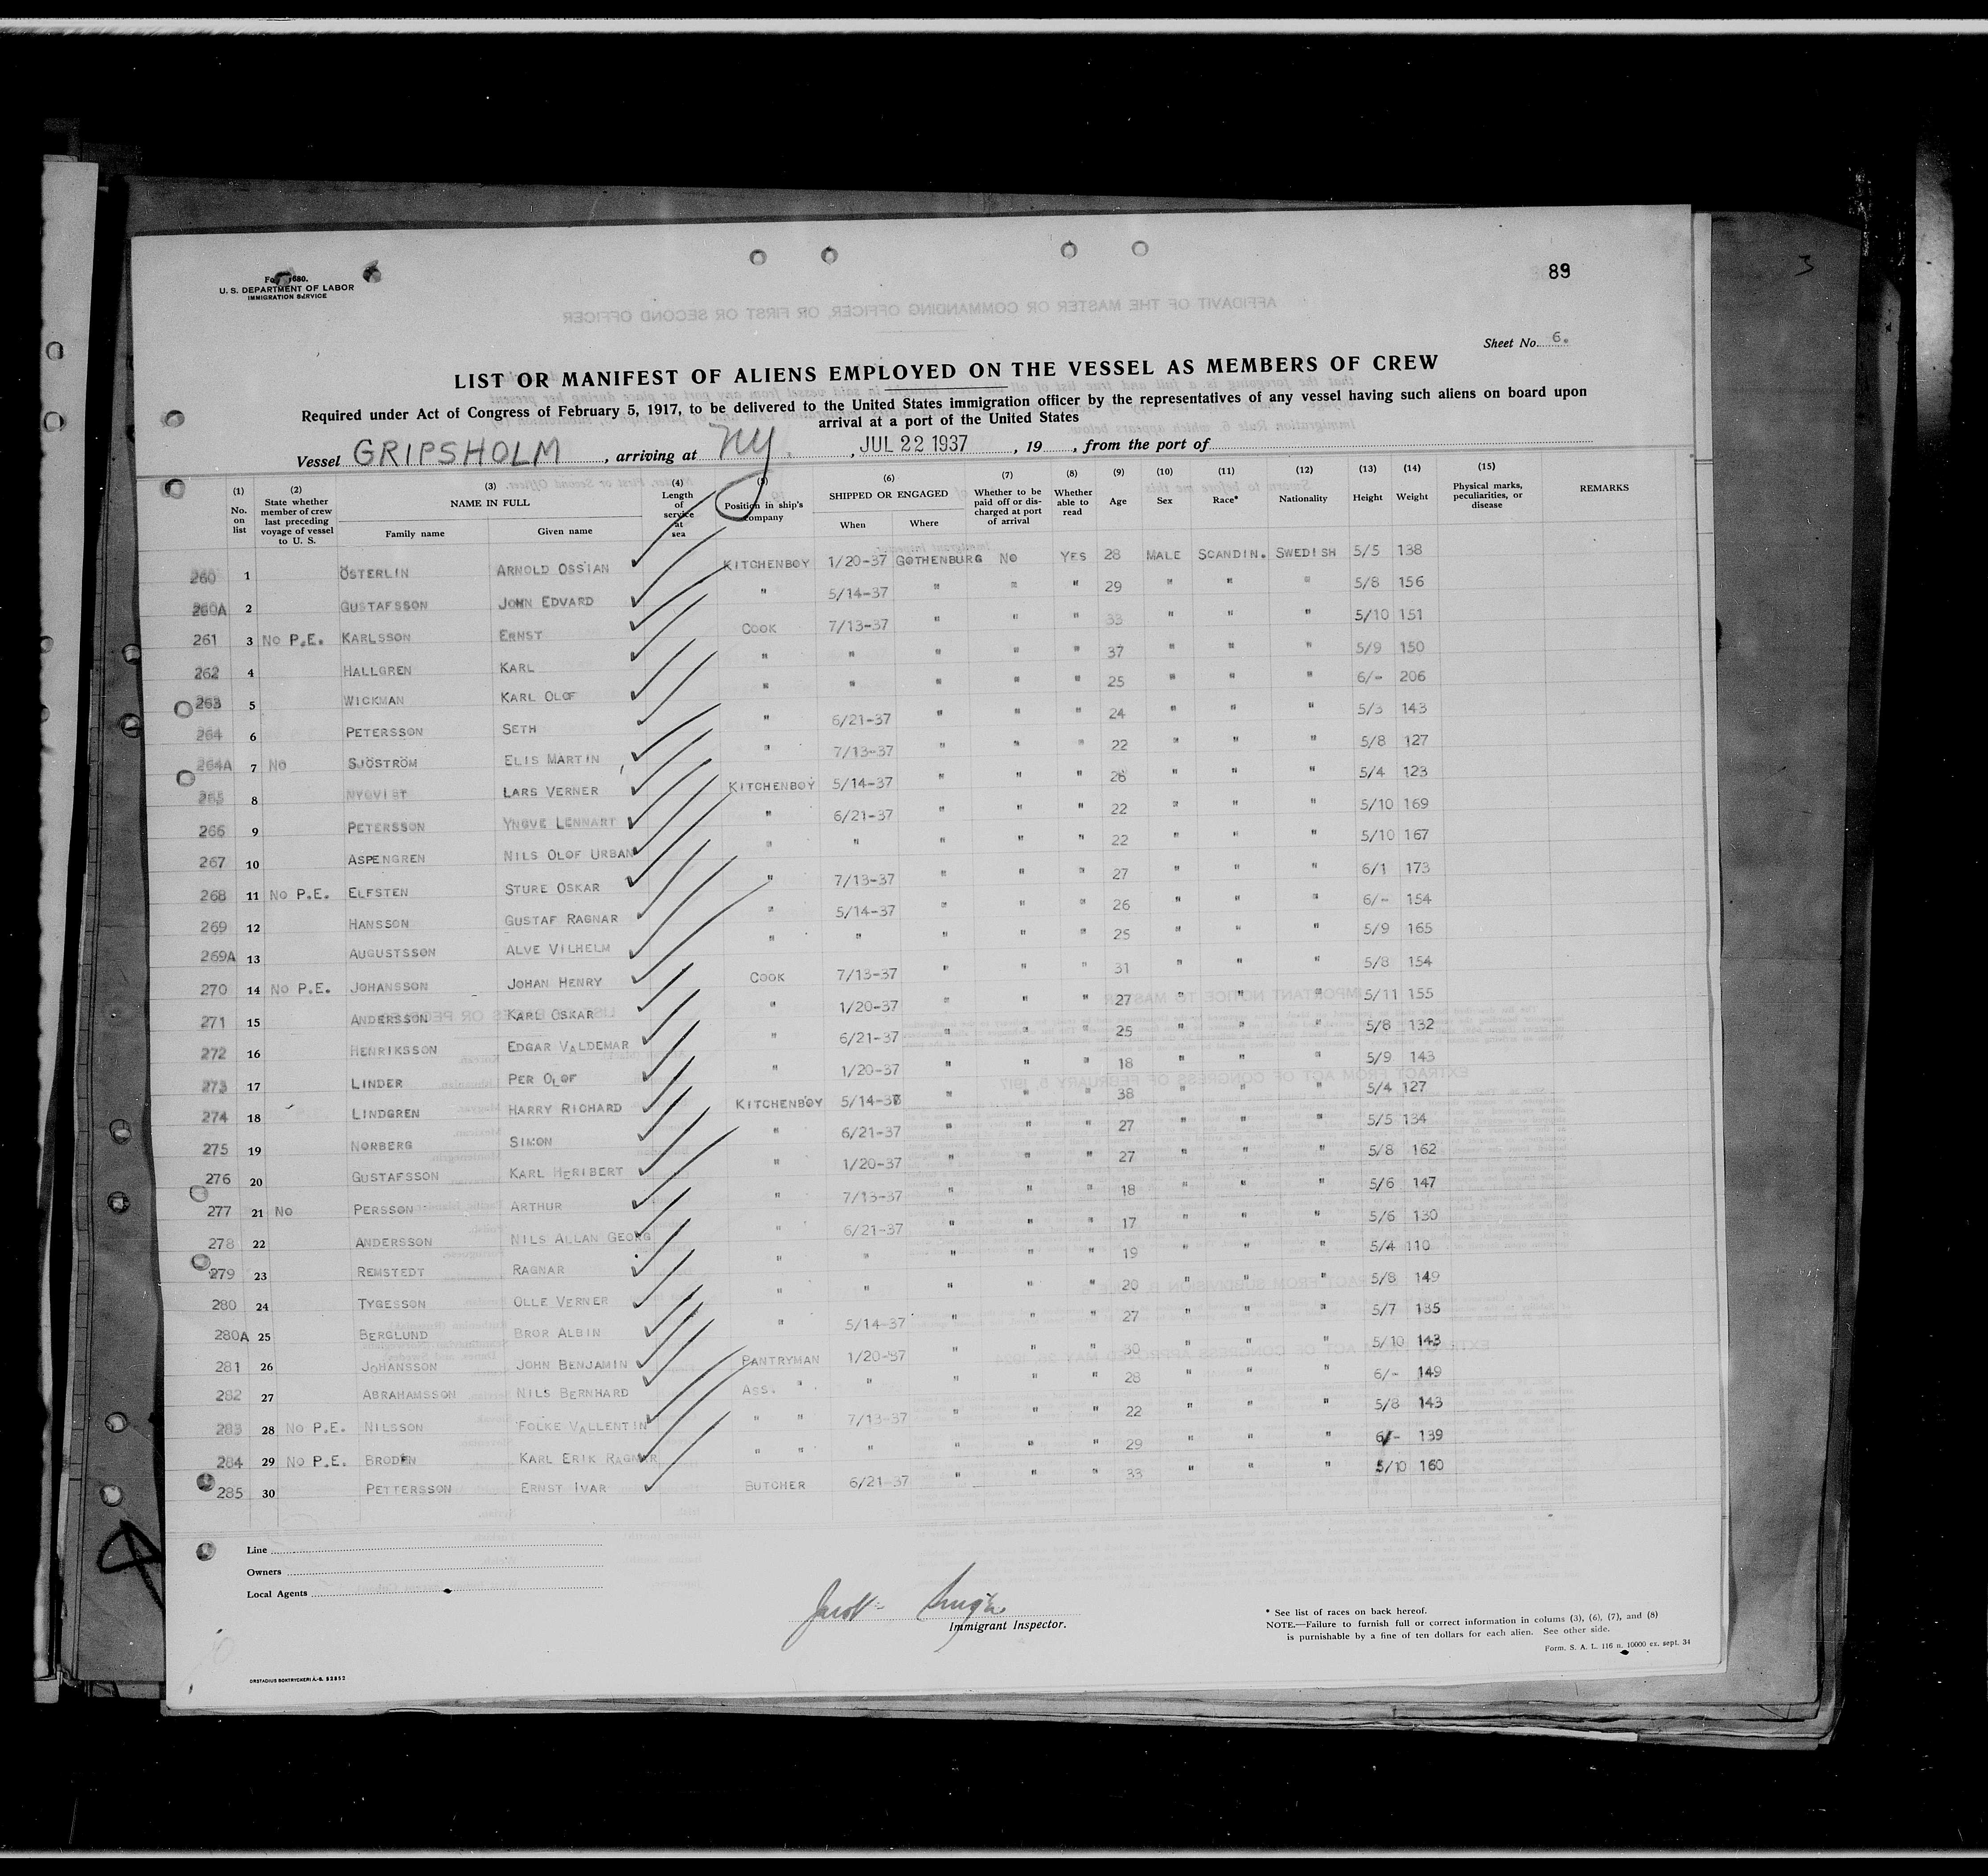 89
Form 680.
U. S. DEPARTMENT OF LABOR
IMMIGRATION SERVICE
Sheet No. 6.
LIST OR MANIFEST OF ALIENS EMPLOYED ON THE VESSEL AS MEMBERS OF CREW
Required under Act of Congress of February 5, 1917, to be delivered to the United States immigration officer by the representatives of any vessel having such aliens on board upon
arrival at a port of the United States
Vessel GRIPSHOLM, arriving at NY., JUL 22 1937, 19 , from the port of
(1) No. on list (2) State whether member of crew last preceding voyage of vessel to U. S. (3) NAME IN FULL Family name Given name (4) Length of service at sea (5) Position in ship's company (6) SHIPPED OR ENGAGED When Where (7) Whether to be paid off or discharged at port of arrival (8) Whether able to read (9) Age (10) Sex (11) Race* (12) Nationality (13) Height (14) Weight (15) Physical marks, peculiarities, or disease REMARKS
260 1 ÖSTERLIN ARNOLD OSSIAN KITCHENBOY 1/20-37 GOTHENBURG NO YES 28 MALE SCANDIN. SWEDISH 5/5 138
260A 2 GUSTAFSSON JOHN EDVARD " 5/14-37 " " " 29 " " " 5/8 156
261 3 NO P.E. KARLSSON ERNST COOK 7/13-37 " " " 33 " " " 5/10 151
262 4 HALLGREN KARL " " " " " 37 " " " 5/9 150
263 5 WICKMAN KARL OLOF " " " " " 25 " " " 6/- 206
264 6 PETERSSON SETH " 6/21-37 " " " 24 " " " 5/3 143
264A 7 NO SJÖSTRÖM ELIS MARTIN " 7/13-37 " " " 22 " " " 5/8 127
265 8 NYQVIST LARS VERNER KITCHENBOY 5/14-37 " " " 26 " " " 5/4 123
266 9 PETERSSON YNGVE LENNART " 6/21-37 " " " 22 " " " 5/10 169
267 10 ASPENGREN NILS OLOF URBAN " " " " " 22 " " " 5/10 167
268 11 NO P.E. ELFSTEN STURE OSKAR " 7/13-37 " " " 27 " " " 6/1 173
269 12 HANSSON GUSTAF RAGNAR " 5/14-37 " " " 26 " " " 6/- 154
269A 13 AUGUSTSSON ALVE VILHELM " " " " " 25 " " " 5/9 165
270 14 NO P.E. JOHANSSON JOHAN HENRY COOK 7/13-37 " " " 31 " " " 5/8 154
271 15 ANDERSSON KARL OSKAR " 1/20-37 " " " 27 " " " 5/11 155
272 16 HENRIKSSON EDGAR VALDEMAR " 6/21-37 " " " 25 " " " 5/8 132
273 17 LINDER PER OLOF " 1/20-37 " " " 18 " " " 5/9 143
274 18 LINDGREN HARRY RICHARD KITCHENBOY 5/14-37 " " " 38 " " " 5/4 127
275 19 NORBERG SIMON " 6/21-37 " " " 27 " " " 5/5 134
276 20 GUSTAFSSON KARL HERIBERT " 1/20-37 " " " 27 " " " 5/8 162
277 21 NO PERSSON ARTHUR " 7/13-37 " " " 18 " " " 5/6 147
278 22 ANDERSSON NILS ALLAN GEORG " 6/21-37 " " " 17 " " " 5/6 130
279 23 REMSTEDT RAGNAR " " " " " 19 " " " 5/4 110
280 24 TYGESSON OLLE VERNER " " " " " 20 " " " 5/8 149
280A 25 BERGLUND BROR ALBIN " 5/14-37 " " " 27 " " " 5/7 135
281 26 JOHANSSON JOHN BENJAMIN PANTRYMAN 1/20-37 " " " 30 " " " 5/10 143
282 27 ABRAHAMSSON NILS BERNHARD ASS. " " " " " 28 " " " 6/- 149
283 28 NO P.E. NILSSON FOLKE VALLENTIN " " 7/13-37 " " " 22 " " " 5/8 143
284 29 NO P.E. BRODÉN KARL ERIK RAGNAR " " " " " " 29 " " " 6/- 139
285 30 PETTERSSON ERNST IVAR BUTCHER 6/21-37 " " " 33 " " " 5/10 160
Line
Owners
Local Agents
Jacob
Immigrant Inspector.
* See list of races on back hereof.
NOTE.—Failure to furnish full or correct information in colums (3), (6), (7), and (8)
is purnishable by a fine of ten dollars for each alien. See other side.
Form. S. A. L. 116 n. 10000 ex. sept. 34
ORSTADIUS BOKTRYCKERI A.-B. 52852